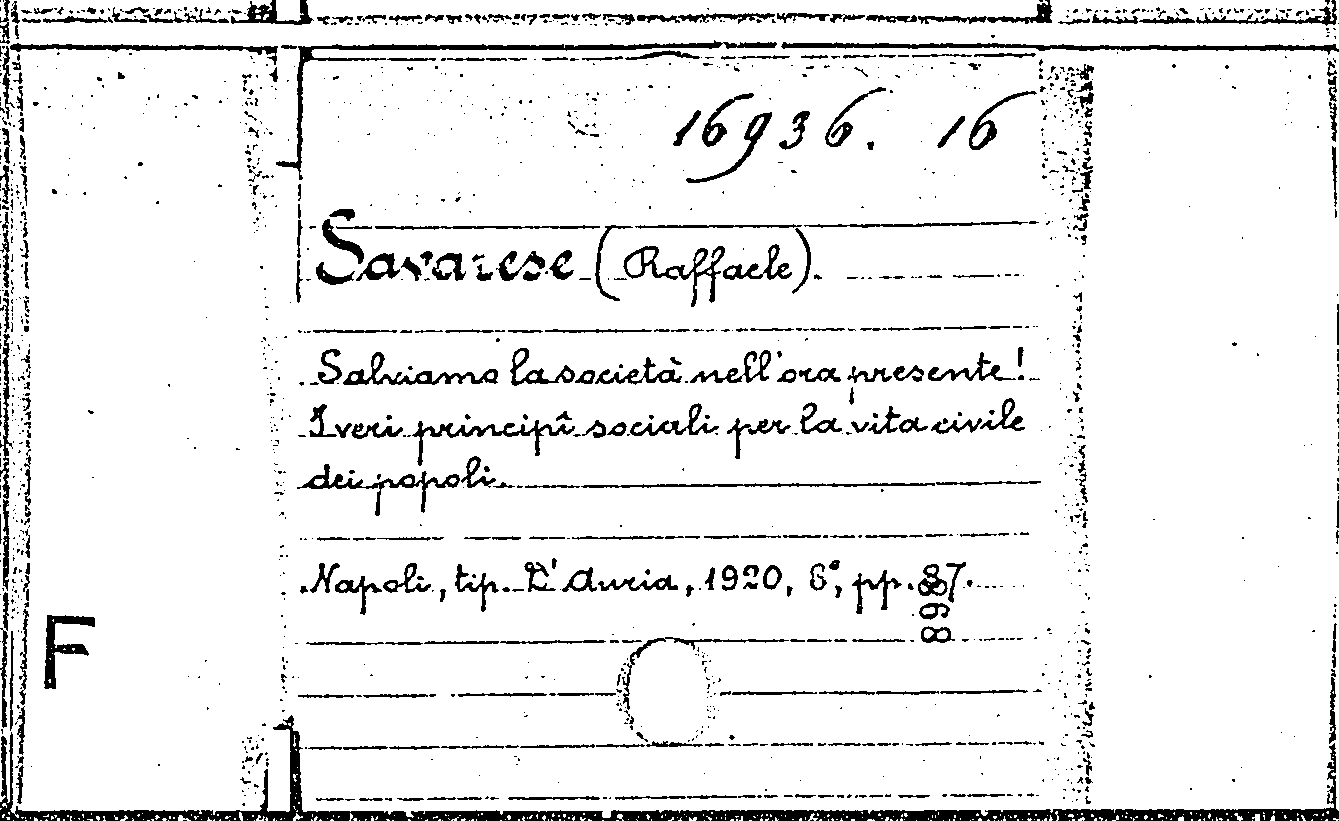 16936. 16
Savarese (Raffaele).
Salviamo la società nell'ora presente!
I veri principî sociali per la vita civile
dei popoli.
Napoli, tip. D'Auria, 1920, 8°, pp. 37.
868
F